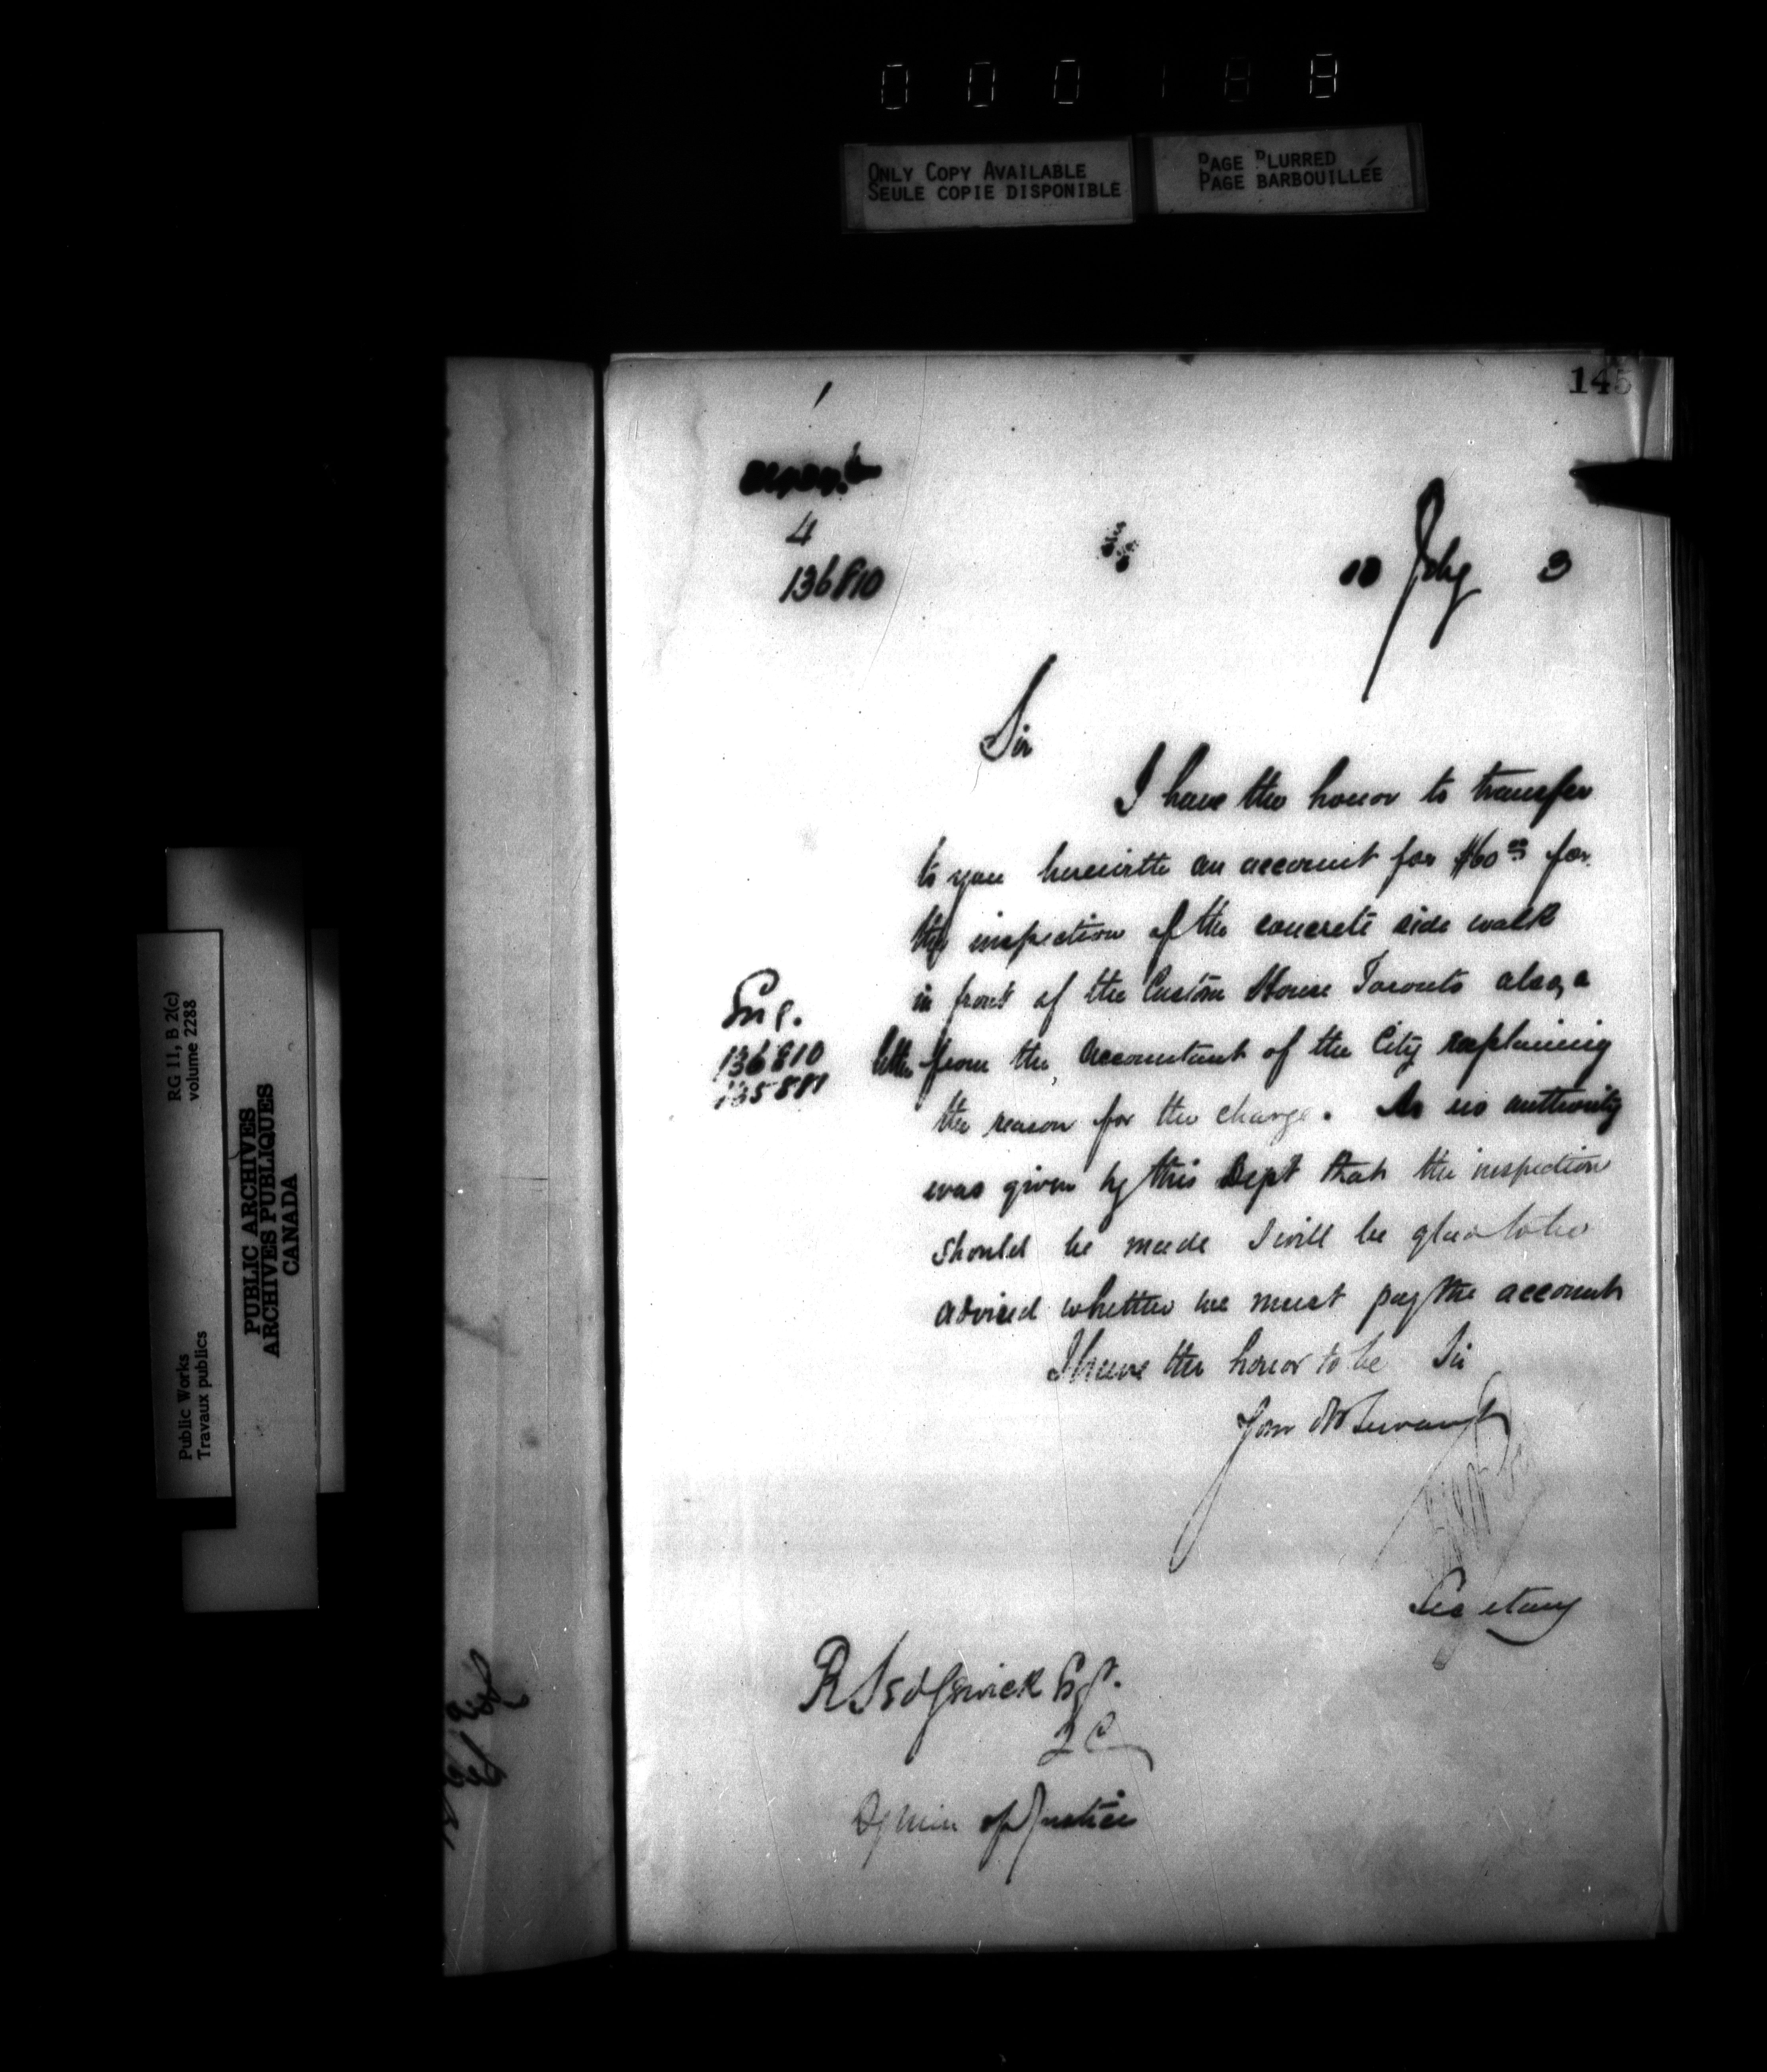 000188
ONLY COPY AVAILABLE
SEULE COPIE DISPONIBLE
PAGE BLURRED
PAGE BARBOUILLÉE
145
4
136810
10 July 3
Sir
I have the honor to transfer
to you herewith an account for $60.00 for
the inspection of the concrete side walk
in front of the Custom House Toronto also, a
letter from the accountant of the City explaining
the reason for the charge. As no authority
was given by this Dept that the inspection
should be made I will be glad to be
advised whether we must pay the account
Enc.
136810
I have the honor to be Sir
Your Ob Servant
Secretary
R Sedgewick Esq.
Q C
Dy Min of Justice
RG 11, B 2(c)
volume 2288
Public Works
Travaux publics
PUBLIC ARCHIVES
ARCHIVES PUBLIQUES
CANADA